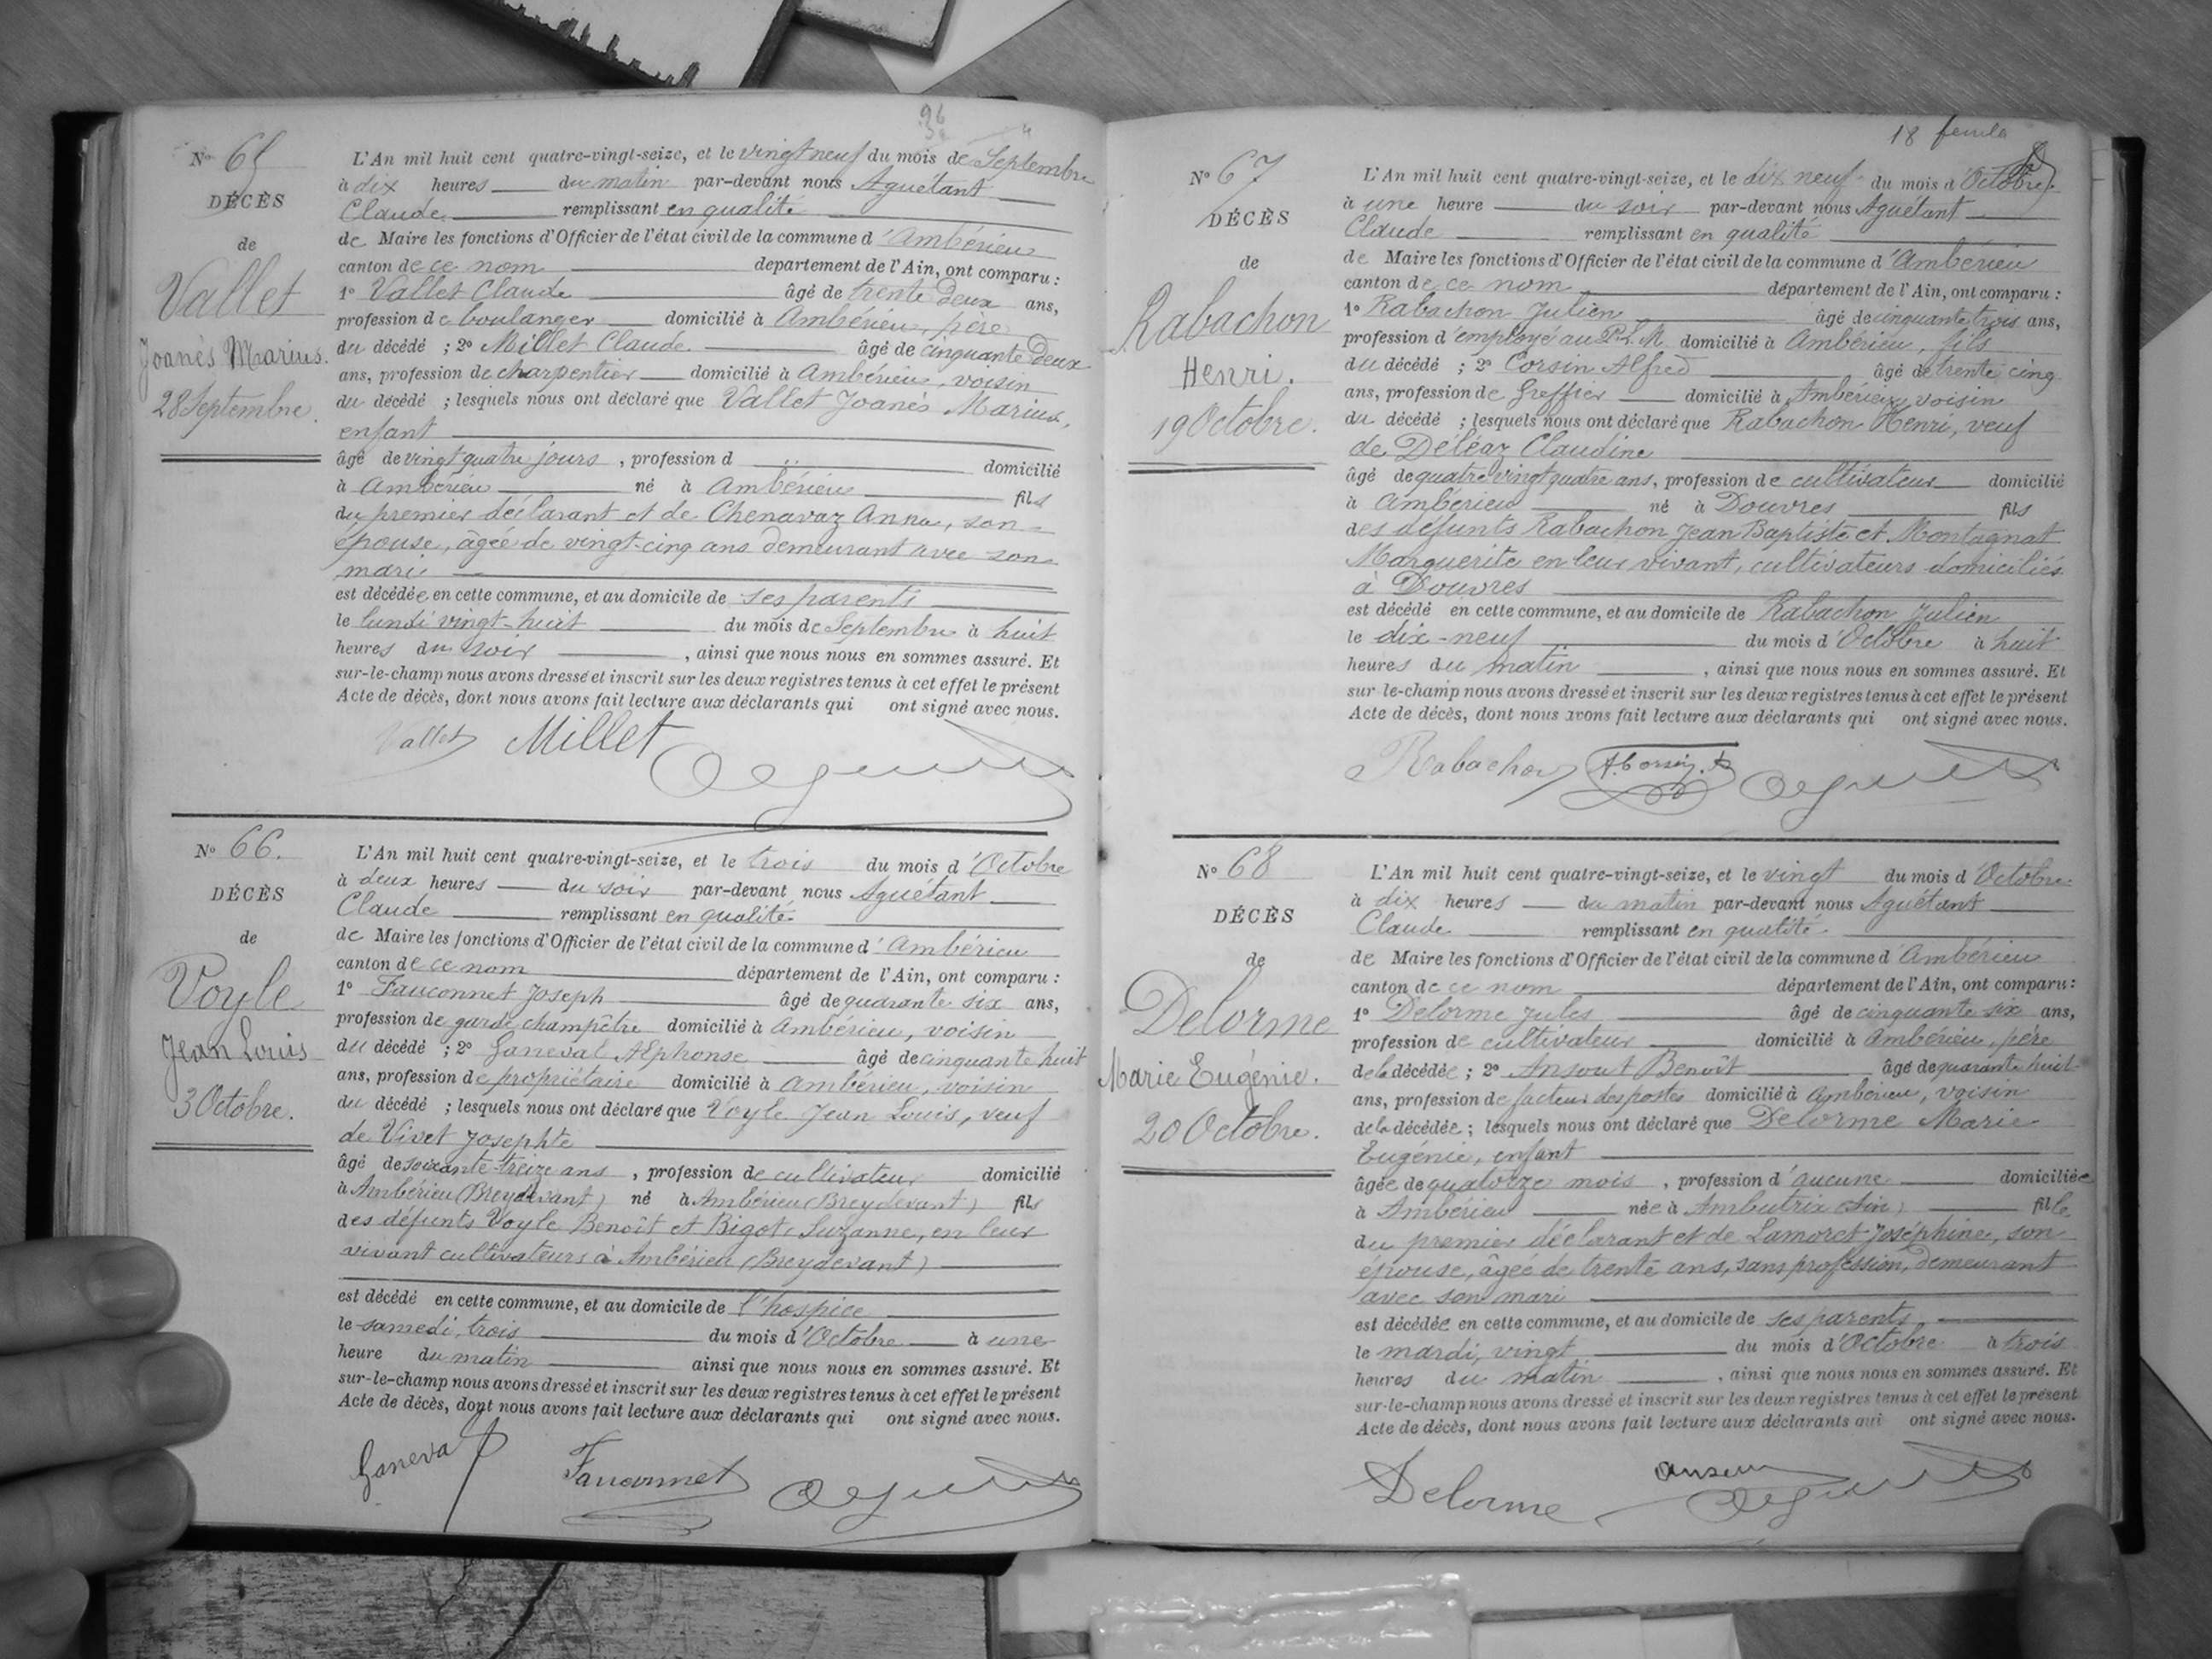 96
N° 65
DÉCÈS
de
Vallet
Joanès Marius.
28 Septembre.
L'An mil huit cent quatre-vingt-seize, et le vingt neuf du mois de Septembre
à dix heures du matin par-devant nous Aguétant
Claude remplissant en qualité
de Maire les fonctions d'Officier de l'état civil de la commune d'Ambérieu
canton de ce nom département de l'Ain, ont comparu :
1° Vallet Claude âgé de trente deux ans,
profession de boulanger domicilié à Ambérieu, père
du décédé ; 2° Millet Claude. âgé de cinquante deux
ans, profession de charpentier domicilié à Ambérieu, voisin
du décédé ; lesquels nous ont déclaré que Vallet Joanès Marius,
enfant
âgé de vingt quatre jours , profession d domicilié
à Ambérieu né à Ambérieu fils
du premier déclarant et de Chenavaz Anna, son
épouse, âgée de vingt-cinq ans demeurant avec son
mari
est décédée en cette commune, et au domicile de ses parents
le lundi vingt-huit du mois de Septembre à huit
heures du soir , ainsi que nous nous en sommes assuré. Et
sur-le-champ nous avons dressé et inscrit sur les deux registres tenus à cet effet le présent
Acte de décès, dont nous avons fait lecture aux déclarants qui ont signé avec nous.
Vallet Millet
N° 66.
DÉCÈS
de
Voyle
Jean Louis
3 Octobre.
L'An mil huit cent quatre-vingt-seize, et le trois du mois d'Octobre
à deux heures du soir par-devant nous Aguétant
Claude remplissant en qualité
de Maire les fonctions d'Officier de l'état civil de la commune d'Ambérieu
canton de ce nom département de l'Ain, ont comparu :
1° Fauconnet Joseph âgé de quarante six ans,
profession de garde champêtre domicilié à Ambérieu, voisin
du décédé ; 2° Ganeval Alphonse âgé de cinquante huit
ans, profession de propriétaire domicilié à Ambérieu, voisin
du décédé ; lesquels nous ont déclaré que Voyle Jean Louis, veuf
de Vivet Josephte
âgé de soixante-treize ans , profession de cultivateur domicilié
à Ambérieu (Breydevant) né à Ambérieu (Breydevant) fils
des défunts Voyle Benoît et Bigot Suzanne, en leur
vivant cultivateurs à Ambérieu (Breydevant)
est décédé en cette commune, et au domicile de l'hospice
le samedi, trois du mois d'Octobre à une
heure du matin ainsi que nous nous en sommes assuré. Et
sur-le-champ nous avons dressé et inscrit sur les deux registres tenus à cet effet le présent
Acte de décès, dont nous avons fait lecture aux déclarants qui ont signé avec nous.
Ganeval Fauconnet
N° 67
DÉCÈS
de
Rabachon
Henri.
19 Octobre.
L'An mil huit cent quatre-vingt-seize, et le dix neuf du mois d'Octobre
à une heure du soir par-devant nous Aguétant
Claude remplissant en qualité
de Maire les fonctions d'Officier de l'état civil de la commune d'Ambérieu
canton de ce nom département de l'Ain, ont comparu :
1° Rabachon Julien âgé de cinquante trois ans,
profession d'employé au P.L.M. domicilié à Ambérieu, fils
du décédé ; 2° Corsin Alfred âgé de trente cinq
ans, profession de Greffier domicilié à Ambérieu, voisin
du décédé ; lesquels nous ont déclaré que Rabachon Henri, veuf
de Déléaz Claudine
âgé de quatre vingt quatre ans, profession de cultivateur domicilié
à Ambérieu né à Douvres fils
des défunts Rabachon Jean Baptiste et Montagnat
Marguerite en leur vivant, cultivateurs domiciliés
à Douvres
est décédé en cette commune, et au domicile de Rabachon Julien
le dix-neuf du mois d'Octobre à huit
heures du matin , ainsi que nous nous en sommes assuré. Et
sur-le-champ nous avons dressé et inscrit sur les deux registres tenus à cet effet le présent
Acte de décès, dont nous avons fait lecture aux déclarants qui ont signé avec nous.
Rabachon A. Corsin
N° 68
DÉCÈS
de
Delorme
Marie Eugénie.
20 Octobre.
L'An mil huit cent quatre-vingt-seize, et le vingt du mois d'Octobre
à dix heures du matin par-devant nous Aguétant
Claude remplissant en qualité
de Maire les fonctions d'Officier de l'état civil de la commune d'Ambérieu
canton de ce nom département de l'Ain, ont comparu :
1° Delorme Jules âgé de cinquante six ans,
profession de cultivateur domicilié à Ambérieu, père
de la décédée ; 2° Ansout Benoît âgé de quarante huit
ans, profession de facteur des postes domicilié à Ambérieu, voisin
de la décédée ; lesquels nous ont déclaré que Delorme Marie
Eugénie, enfant
âgée de quatorze mois , profession d'aucune domiciliée
à Ambérieu née à Ambutrix (Ain) fille
du premier déclarant et de Lamoret Joséphine, son
épouse, âgée de trente ans, sans profession, demeurant
avec son mari
est décédée en cette commune, et au domicile de ses parents
le mardi, vingt du mois d'Octobre à trois
heures du matin , ainsi que nous nous en sommes assuré. Et
sur-le-champ nous avons dressé et inscrit sur les deux registres tenus à cet effet le présent
Acte de décès, dont nous avons fait lecture aux déclarants qui ont signé avec nous.
Delorme